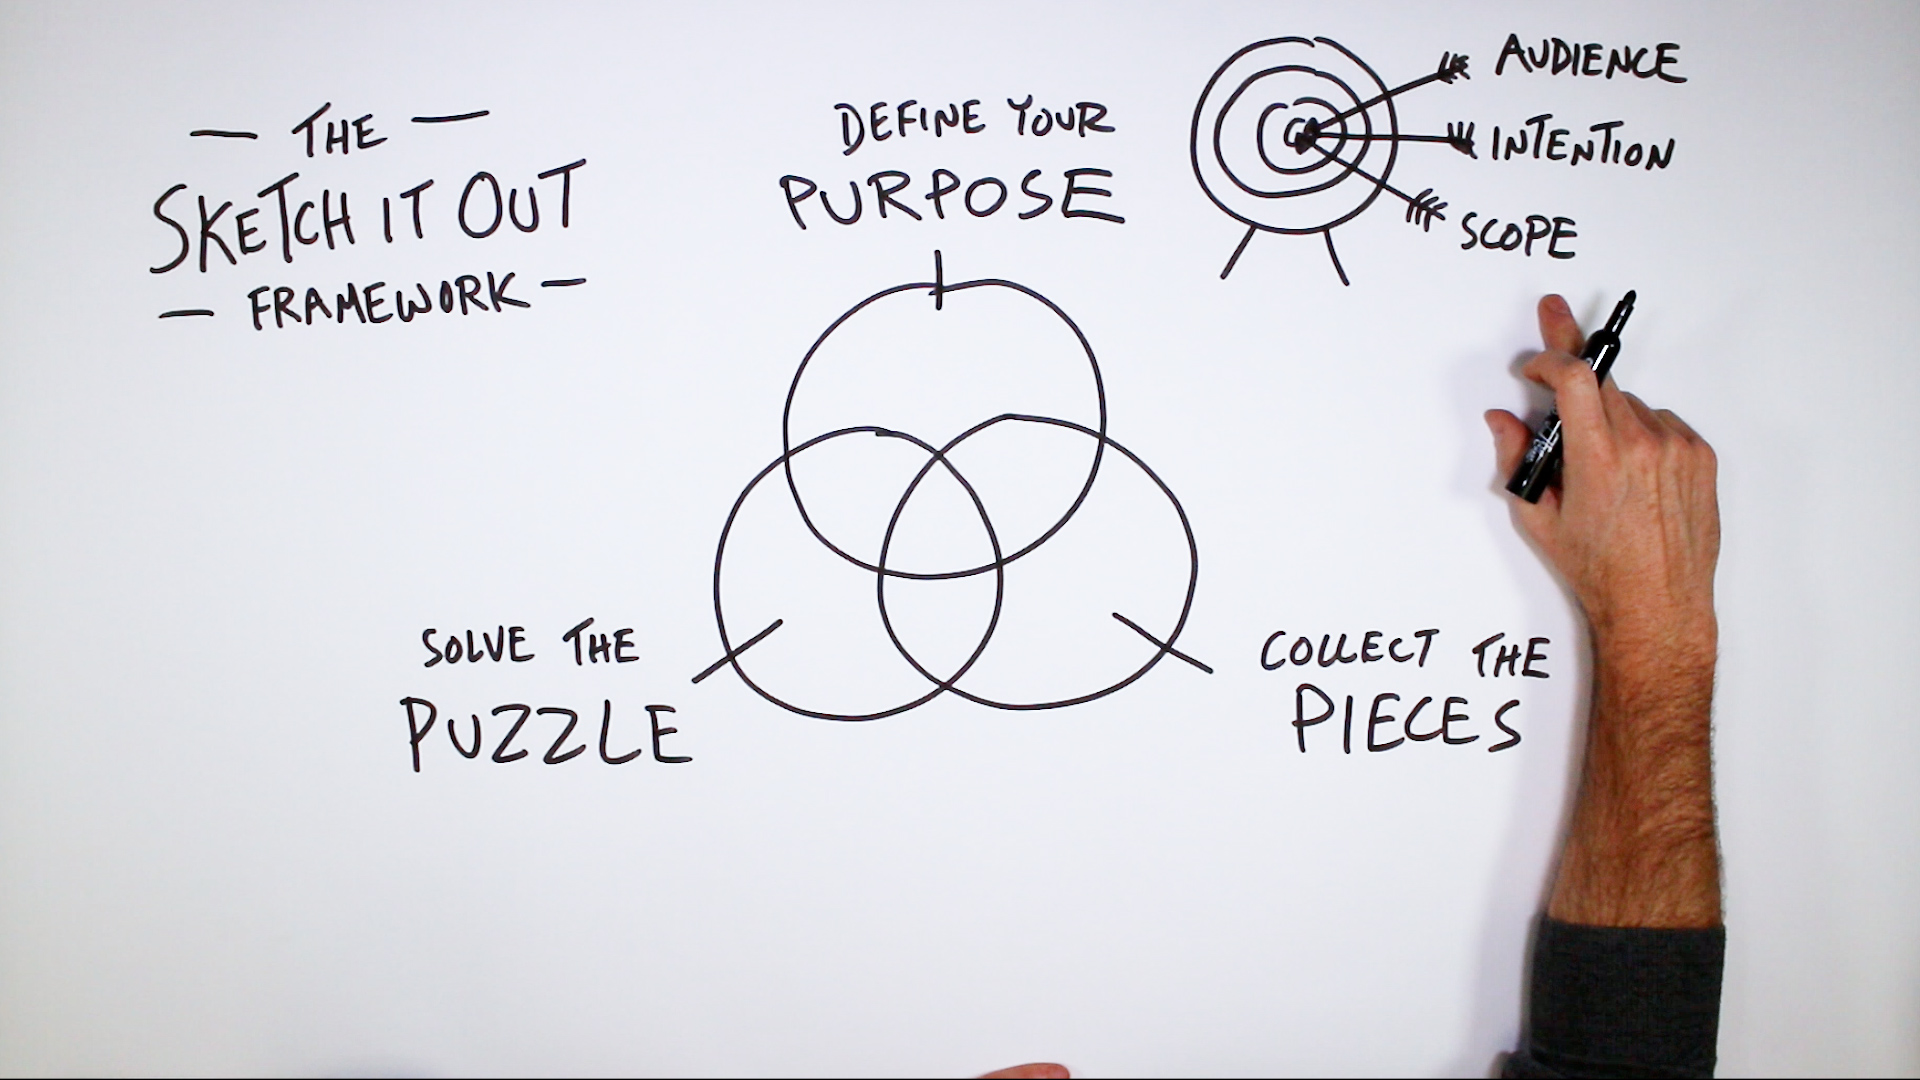 — THE —
SKETCH IT OUT
— FRAMEWORK —
DEFINE YOUR
PURPOSE
AUDIENCE
INTENTION
SCOPE
SOLVE THE
PUZZLE
COLLECT THE
PIECES